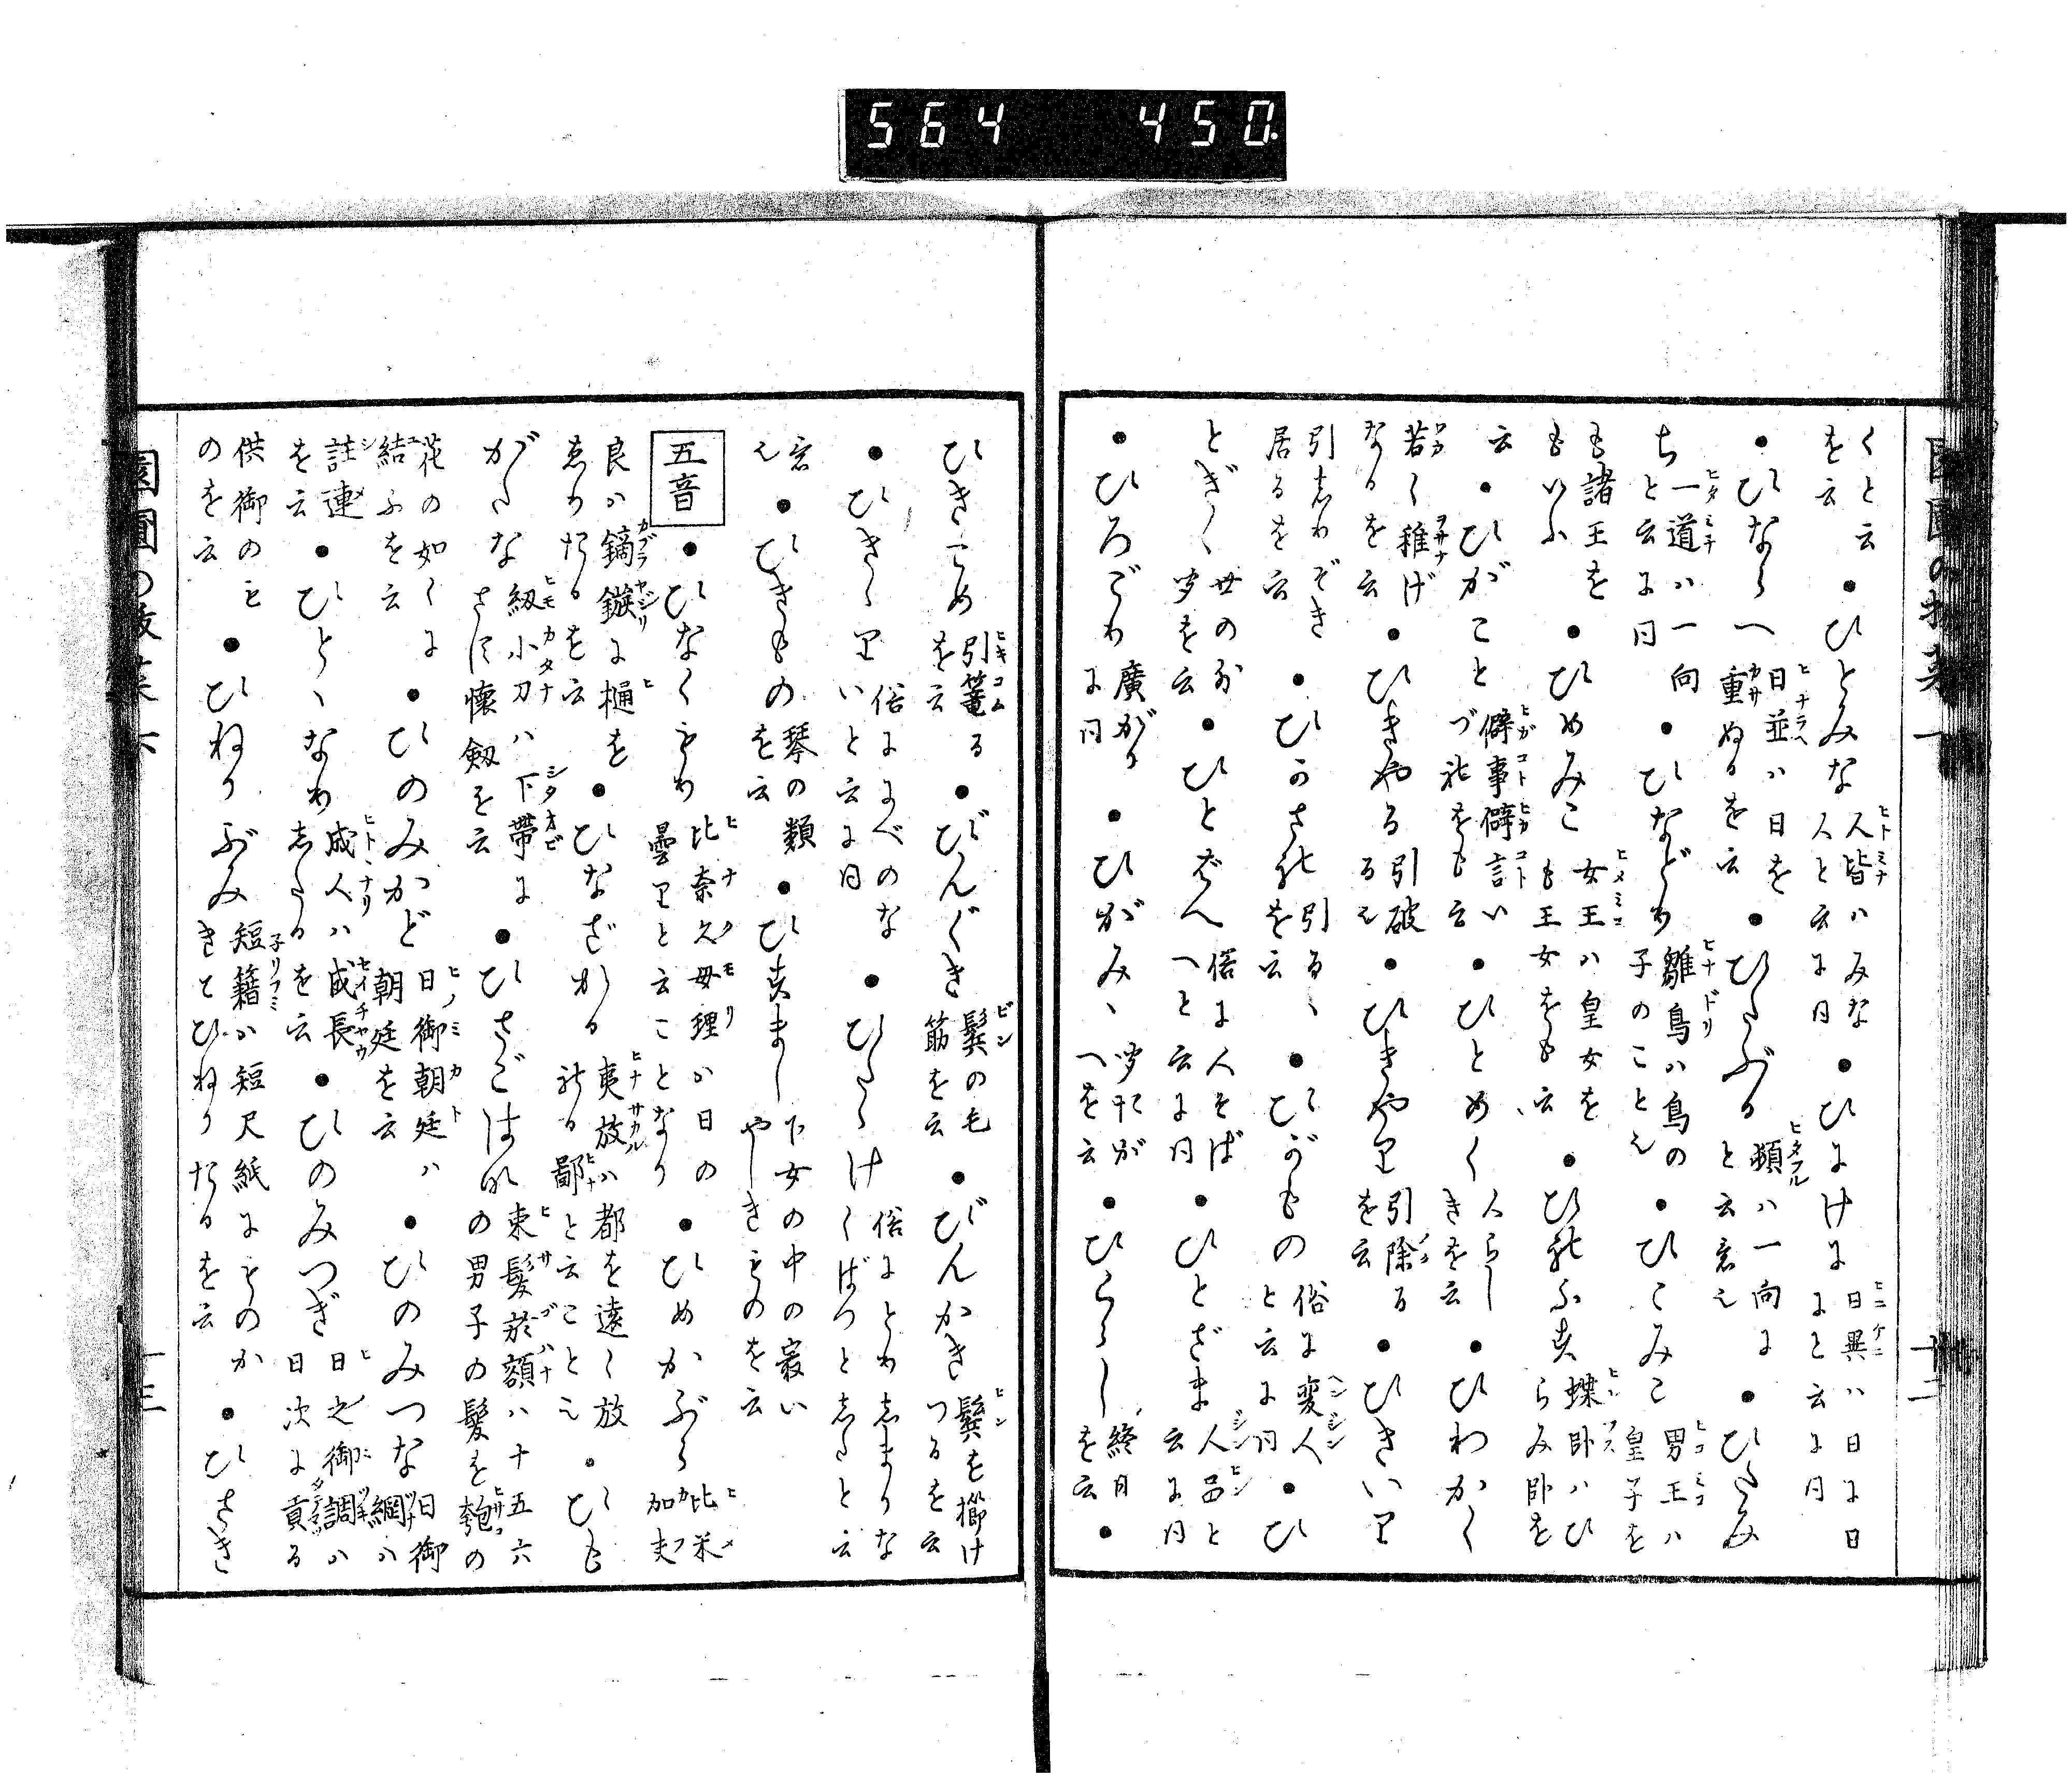 564 450.
くと云
を云
●ひとみな 人皆ハみな
人と云に同
●ひにけに 日異ハ日に日
にと云に同
●ひならへ 日並ハ日を
重ぬるを云
●ひたぶる 頻ハ一向に
と云意也
●ひたみ
ち 一道ハ一向
と云に同
●ひなどり 雛鳥ハ鳥の
子のこと也
●ひこみこ 男王ハ
皇子を
も諸王を
もいふ
●ひめみこ 女王ハ皇女を
も王女をも云
●ひれふす 蝶臥ハひ
らみ臥を
云
●ひがこと 僻事僻言い
づれをも云
●ひとめく 人らし
きを云
●ひわかく
若く稚げ
なるを云
●ひきやる 引破
る也
●ひきやり 引除る
を云
●ひきいり
引しりぞき
居るを云
●ひかされ 引るゝ
を云
●ひがもの 俗に変人
と云に同
●ひ
とぎゝ 世の外
聞を云
●ひとぞへ 俗に人そば
へと云に同
●ひとざま 人品と
云に同
●ひろごり 廣がり
に同
●ひがみゝ 聞たが
へを云
●ひくらし 終日
を云
●
ひきこめ 引篭る
を云
●びんぐき 鬢の毛
筋を云
●びんかき 鬢を櫛け
つるを云
●ひたゝけ 俗にとりしまりな
くばつとしたと云
意
也
●ひきもの 琴の類
を云
●ひすまし 下女の中の最い
やしきものを云
五音
●ひなくもり 比奈久母理か日の
曇りと云ことなり
●ひめかぶら 比米
加夫
良か鏑鏃に樋を
ゑりたるを云
●ひなざかる 夷放ハ都を遠く放
れる鄙と云こと也
●ひも
がたな 紐小刀ハ下帯に
さす懐剱を云
●ひさごはな 束髪於額ハ十五六
の男子の髪を匏の
花の如くに
結ふを云
●ひのみかど 日御朝廷ハ
朝廷を云
●ひのみつな 日御
綱ハ
註連
を云
●ひとゝなり 成人ハ成長
したるを云
●ひのみつぎ 日之御調ハ
日次に貢る
供御のも
のを云
●ひねりぶみ 短籍か短尺紙にものか
きとひねりたるを云
●ひさき